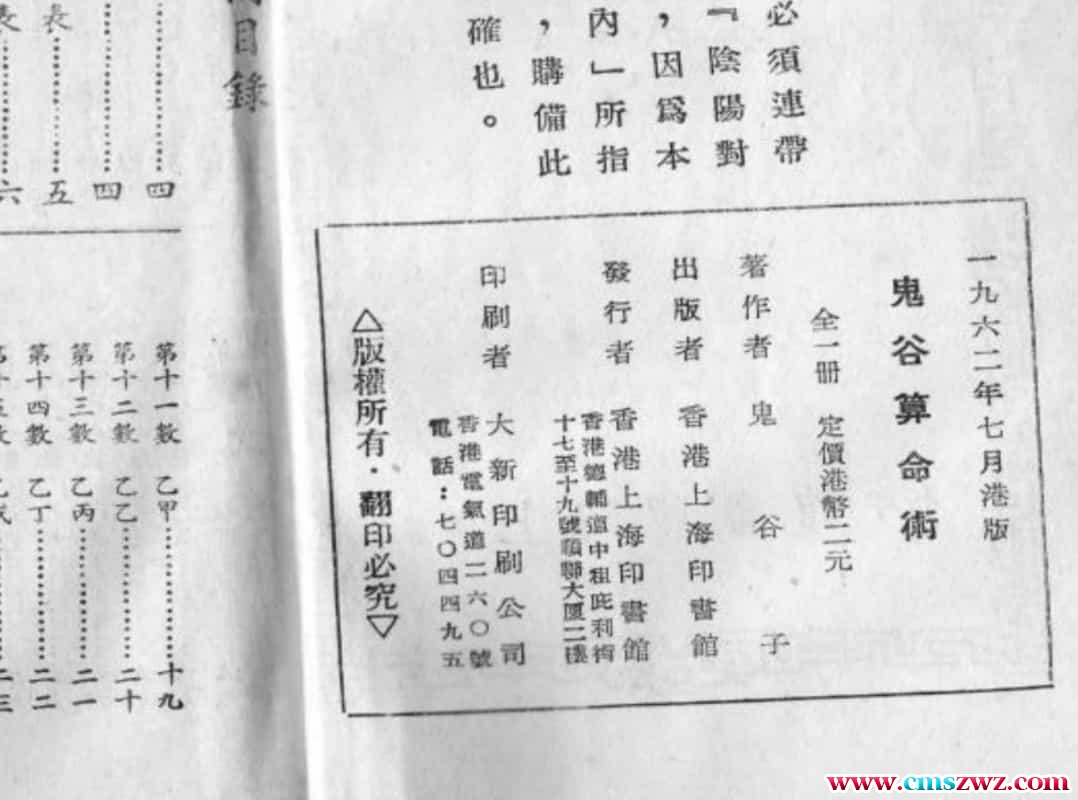 必須連帶
『陰陽對
，因爲本
內」所指
，購備此
確也。
一九六二年七月港版
鬼谷算命術
全一册 定價港幣二元
著作者 鬼谷子
出版者 香港上海印書館
發行者 香港上海印書館
香港德輔道中租庇利街
十七至十九號順聯大厦二樓
印刷者 大新印刷公司
香港電氣道二六〇號
電話：七〇四四九五
△版權所有·翻印必究▽
目錄
四
四
表 五
表 六
第十一數 乙甲 十九
第十二數 乙乙 二十
第十三數 乙丙 二一
第十四數 乙丁 二二
第十五數 乙戊 二三
www.cmszwz.com